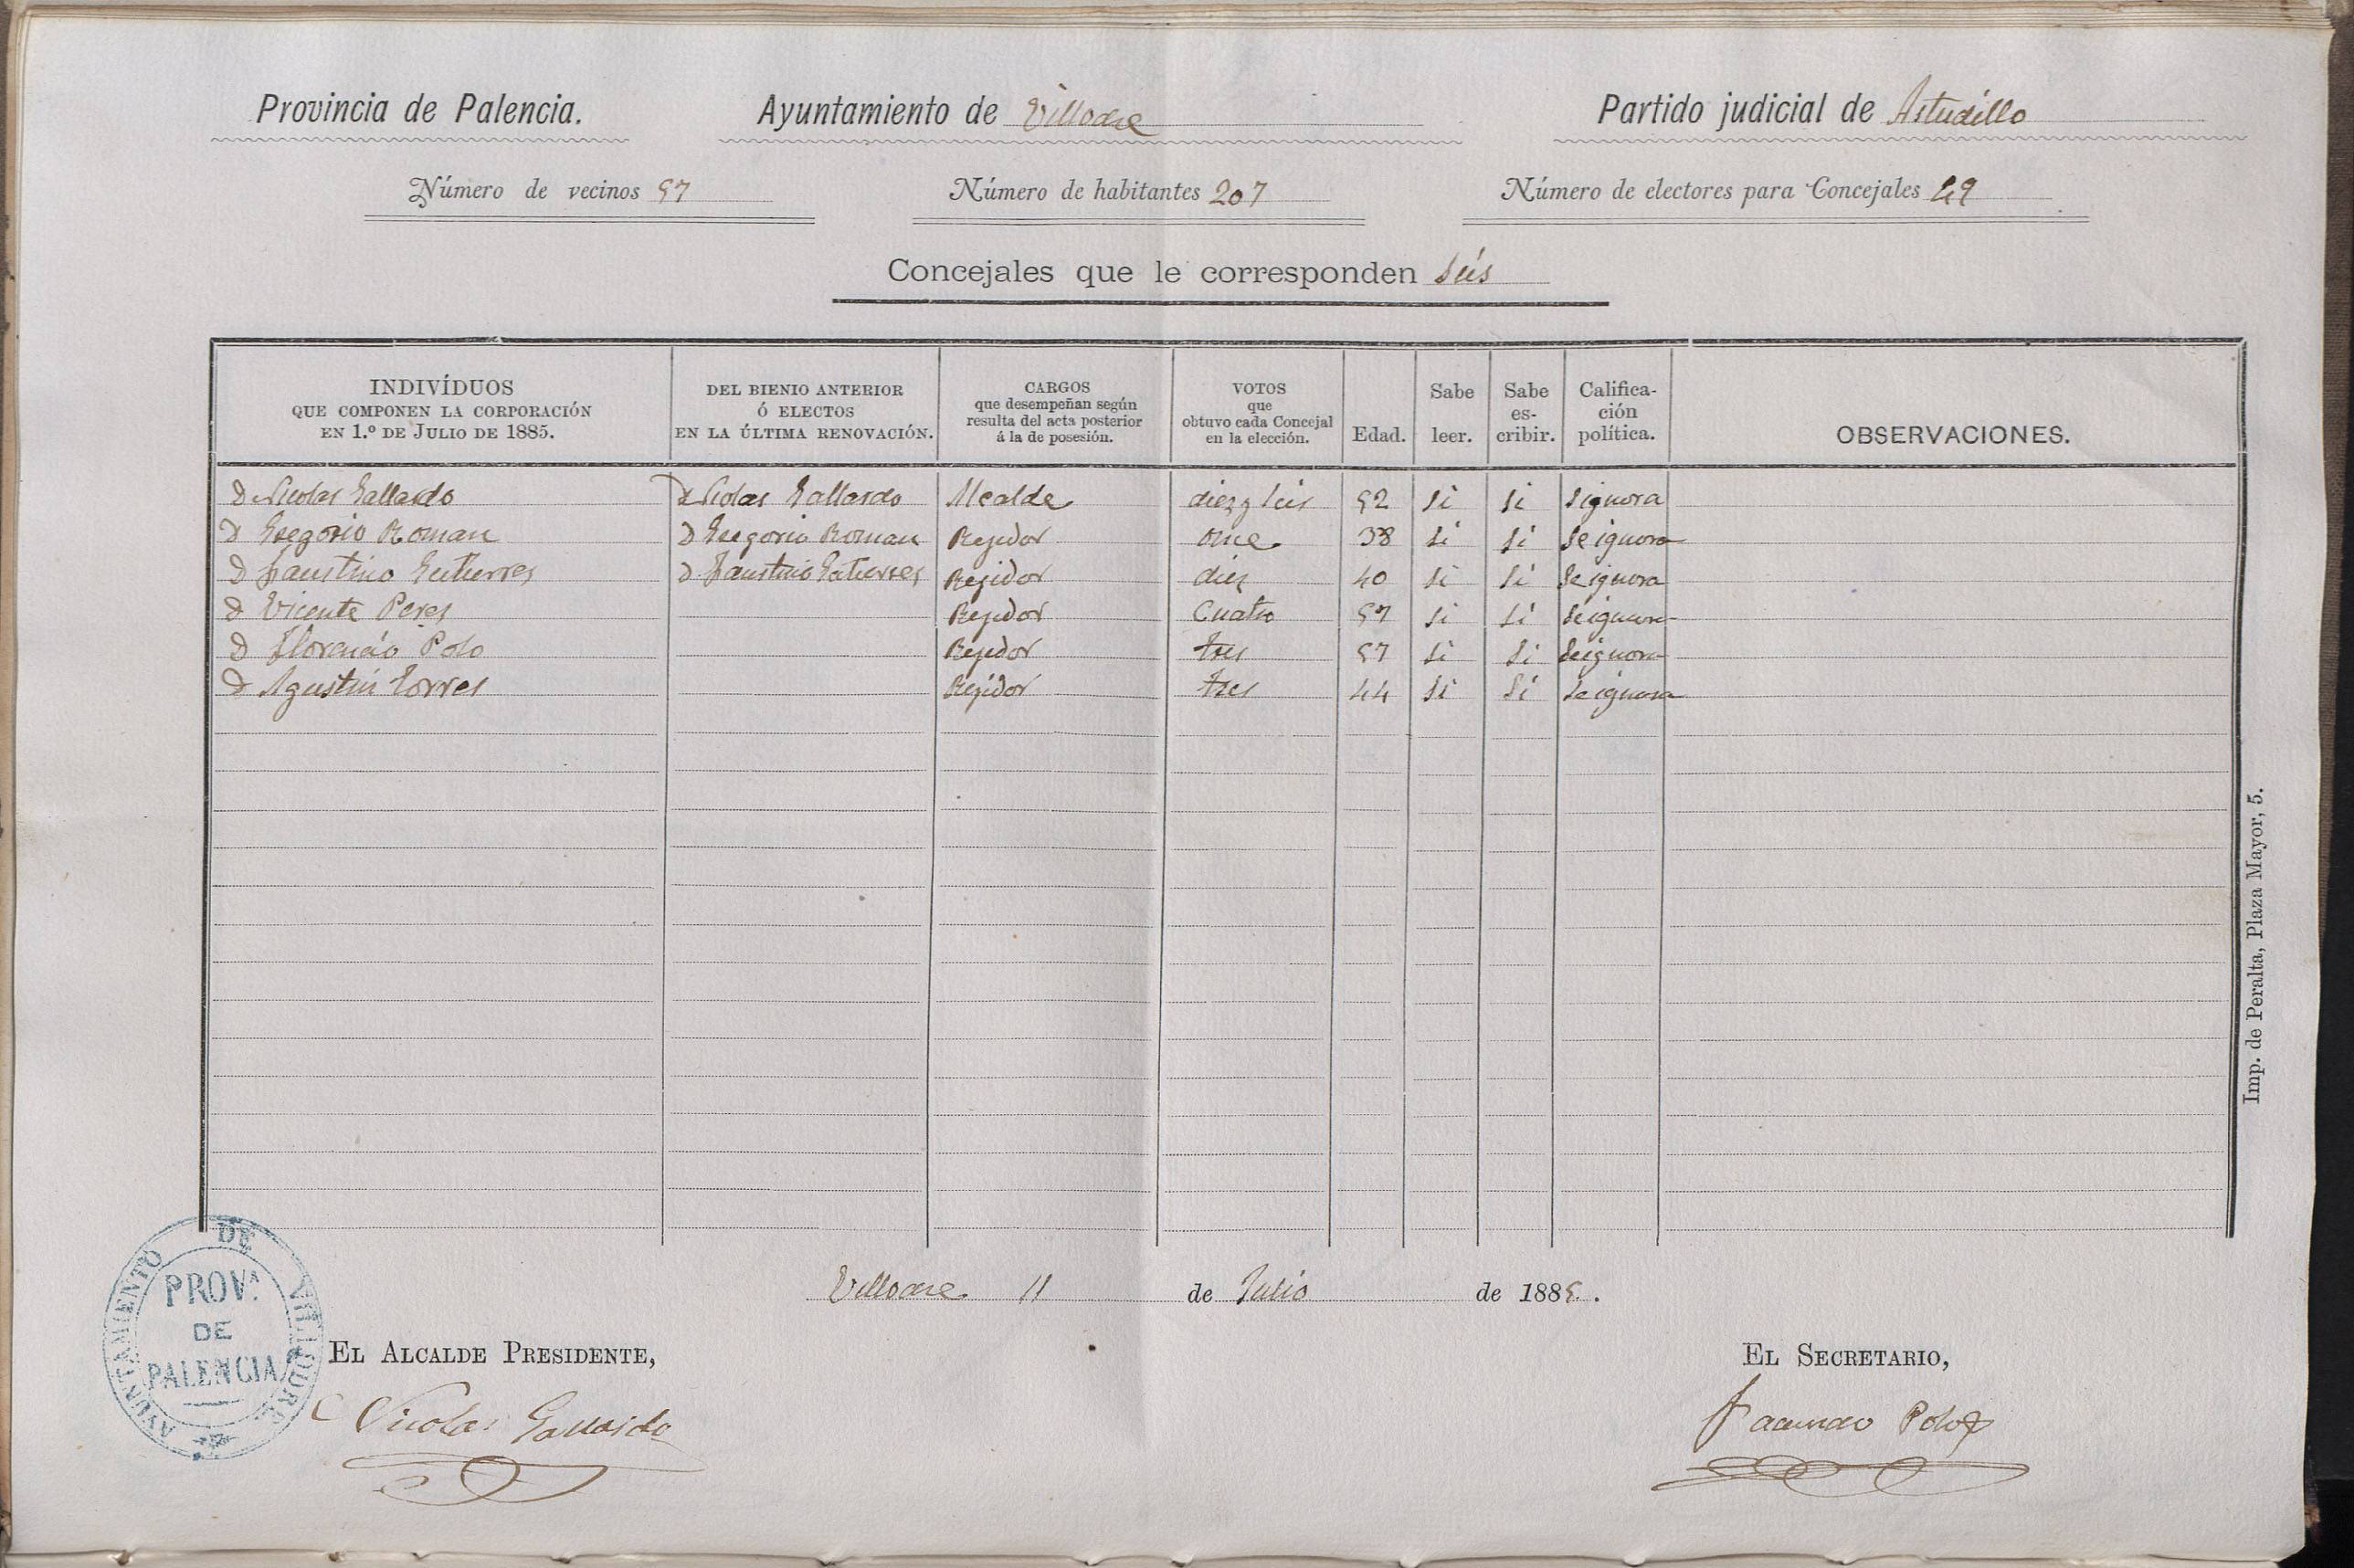 Provincia de Palencia. Ayuntamiento de Villodre Partido judicial de Astudillo
Número de vecinos 57 Número de habitantes 207 Número de electores para Concejales 49
Concejales que le corresponden seis
INDIVÍDUOS QUE COMPONEN LA CORPORACIÓN EN 1.º DE JULIO DE 1885. DEL BIENIO ANTERIOR Ó ELECTOS EN LA ÚLTIMA RENOVACIÓN. CARGOS que desempeñan según resulta del acta posterior á la de posesión. VOTOS que obtuvo cada Concejal en la elección. Edad. Sabe leer. Sabe es-cribir. Califica-ción política. OBSERVACIONES.
D Nicolas Gallardo D Nicolas Gallardo Alcalde diez y seis 52 si si signora
D Gregorio Roman D Gregorio Roman Regidor once 38 si si se ignora
D Faustino Gutierres D Faustino Gutierres Regidor diez 40 si si se ignora
D Vicente Peres Regidor Cuatro 57 si si se ignora
D Florencio Polo Regidor tres 57 si si se ignora
D Agustin Torres Regidor tres 44 si si se ignora
Villodre 11 de Julio de 1885.
EL ALCALDE PRESIDENTE, EL SECRETARIO,
Nicolas Gallardo Facundo Polo
AYUNTAMIENTO DE VILLODRE
PROV.A
DE
PALENCIA
Imp. de Peralta, Plaza Mayor, 5.